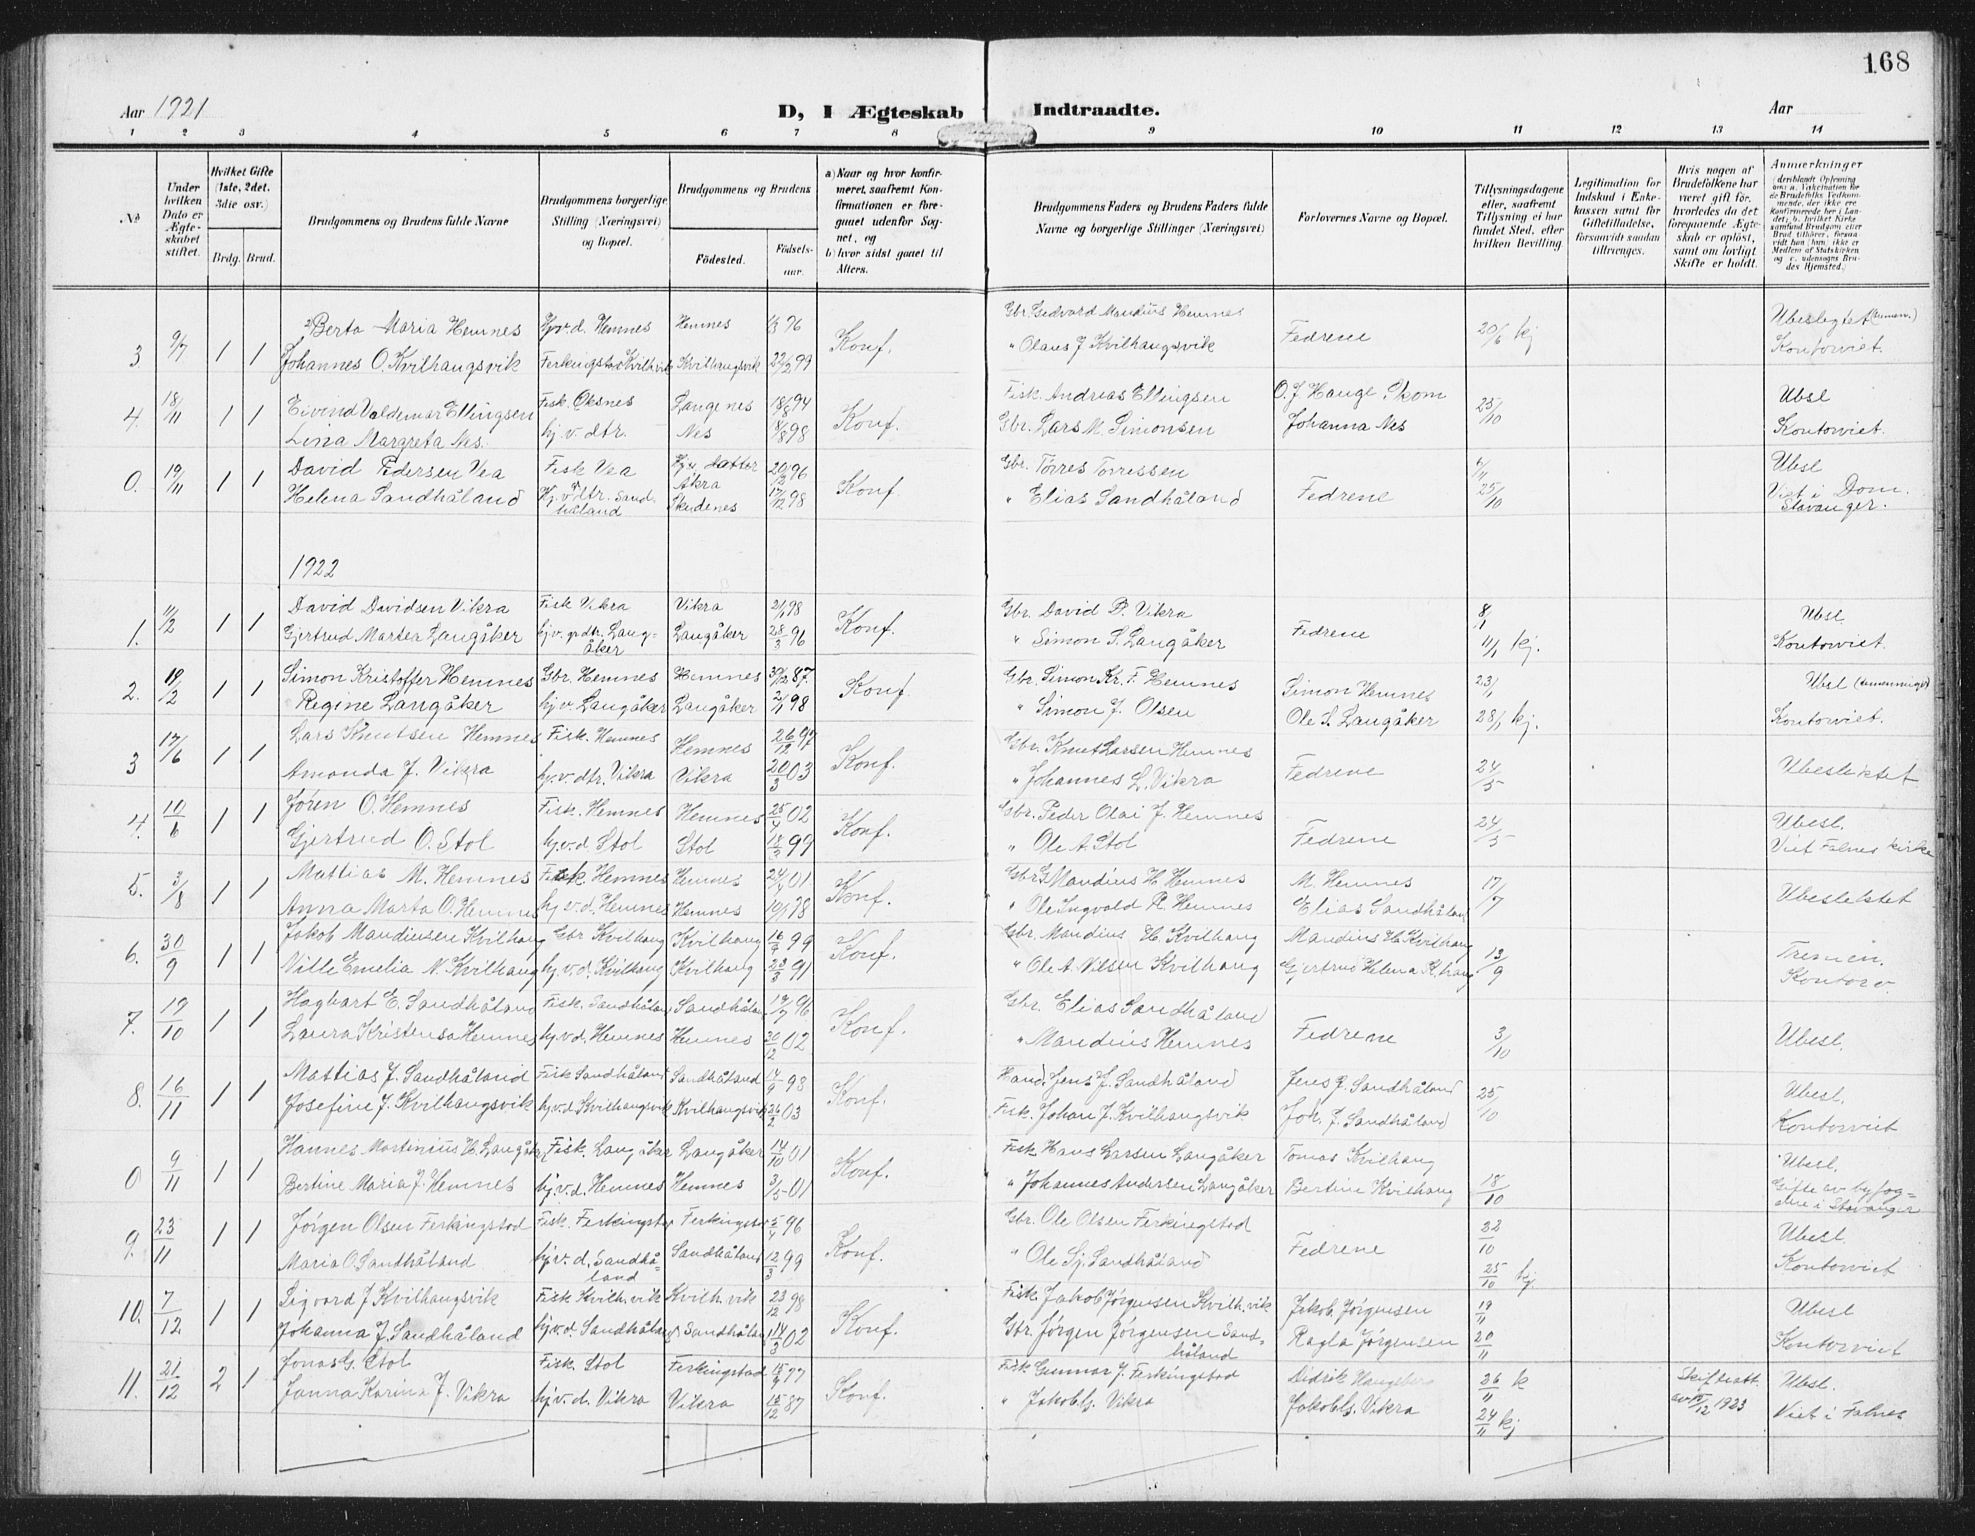 168
Aar 1921
D, I Ægteskab Indtraadte.
Aar
1 2 3 4 5 6 7 8 9 10 11 12 13 14
№
Under hvilken Dato er Ægteskabet stiftet.
Hvilket Gifte (1ste, 2det. 3die osv.)
Brdg. Brud.
Brudgommens og Brudens fulde Navne
Brudgommens borgerlige Stilling (Næringsvei) og Bopæl.
Brudgommens og Brudens
Fødested.
Fødselsaar.
a) Naar og hvor konfirmeret, saafremt Konfirmationen er foregaaet udenfor Sognet, og
b) hvor sidst gaaet til Alters.
Brudgommens Faders og Brudens Faders fulde Navne og borgerlige Stillinger (Næringsvei)
Forlovernes Navne og Bopæl.
Tillysningsdagene eller, saafremt Tillysning ei har fundet Sted, efter hvilken Bevilling.
Legitimation for Indskud i Enkekassen samt for Giftetilladelse, forsaavidt saadan tiltrænges.
Hvis nogen af Brudefolkene har været gift før, hvorledes da det foregaaende Ægteskab er opløst, samt om lovligt Skifte er holdt.
Anmerkninger
Berta Maria Hemnes Hemnes Hemnes 76 Gbr. Gedvard Mandius Hemnes Ubeslegtet
3 9/7 1 1 Johannes O. Kvilhaugsvik Kvilhaugsvik 22/2 99 Konf. " Olaus J Kvilhaugsvik Fedrene 20/6 kj Kontorviet.
4. 18/11 1 1 Eivind Valdemar Ellingsen Fisk. Øksnes Langenes 18/8 94 Konf. Fisk. Andreas Ellingsen O. J. Hauge Skom 25/10 Ubsl
Lina Margreta Nes. hj. v. dtr. Nes 18/8 98 Gbr. Lars M. Simonsen Johanna Nes Kontorviet.
0. 19/11 1 1 David Pedersen Vea Fisk Vea Åkra 20/2 96 Konf. Gbr. Torres Torressen Ubsl
Helena Sandhåland Hj. v. dtr. Sandhåland Skudenes 17/12 98 " Elias Sandhåland Fedrene 25/10 Viet i Dom. Stavanger.
1922
1. 11/2 1 1 David Davidsen Vikra Fisk Vikra Vikra 21/1 98 Konf. Gbr. David P. Vikra 8/1 Ubsl.
Gjertrud Marter Langåker hj. v. grdtr. Langåker Langåker 28/3 96 " Simon S. Langåker Fedrene 11/1 kj. Kontorviet.
2. 19/2 1 1 Simon Kristoffer Hemnes Gbr. Hemnes Hemnes 30/12 87 Konf. Gbr. Simon Kr. F. Hemnes Simon Hemnes 23/1 Ubsl
Regine Langåker hj. v. Langåker Langåker 2/11 98 " Simon J. Olsen Ole S. Langåker 28/1 kj. Kontorviet.
3 17/6 1 1 Lars Knutsen Hemnes Fisk. Hemnes Hemnes 26/12 97 Konf. Gbr. Knut Larsen Hemnes
Amanda J. Vikra hj. v. dtr. Vikra Vikra 20/3 03 " Johannes L. Vikra Fedrene 24/5 Ubeslektet
4. 10/6 1 1 Jøren O. Hemnes Fisk. Hemnes Hemnes 25/4 02 Konf. Gbr. Peder Olai J. Hemnes 24/5 Ubesl.
Gjertrud O. Stol hj. v. d. Stol Stol 18/3 99 " Ole A. Stol Fedrene Viet Falnes kirke
5. 3/8 1 1 Mattias M. Hemnes Fisk. Hemnes Hemnes 24/4 01 Konf. Gbr Mandius H Hemnes M. Hemnes 17/7
Anna Marta O. Hemnes hj. v. d. Hemnes Hemnes " Ole Ingvald R. Hemnes Elias Sandhåland Ubeslektet
6. 30/9 1 1 Jakob Mandiusen Kvilhaug Gbr Kvilhaug Kvilhaug 16/9 99 Konf. Gbr. Mandius H. Kvilhaug Mandius H. Kvilhaug 13/9 Tremen.
Ville Emelia N. Kvilhaug hj. v. d. Kvilhaug Kvilhaug 23/3 91 " Ole A. Nilsen Kvilhaug Gjertrud Helena K.haug Kontorv.
7. 19/10 1 1 Hagbart E. Sandhåland Fisk. Sandhåland Sandhåland 19/7 96 Konf. Gbr. Elias Sandhåland
Laura Kristensa Hemnes hj. v. d. Hemnes Hemnes 30/12 02 " Mandius Hemnes Fedrene 3/10 Ubesl.
8. 16/11 1 1 Mattias J. Sandhåland Fisk Sandhåland Sandhåland 14/9 98 Konf. Hand. Jens J. Sandhåland Jens J. Sandhåland 25/10 Ubesl.
Josefine J. Kvilhaugsvik hj. v. d. Kvilhaugsvik Kvilhaugsvik 26/2 03 Fisk. Johan J. Kvilhaugsvik Joh. J. Sandhåland Kontorviet
0 9/11 1 1 Hannes Martinius H. Langåker Fisk. Langåker Langåker 14/10 01 Konf. Fisk. Hans Larsen Langåker Tomas Kvilhaug Ubesl.
Bertine Maria J. Hemnes hj. v. d. Hemnes Hemnes 3/5 01 " Johannes Andersen Langåker Bertine Kvilhaug 18/10 Gifte av byfogdne i Stavanger
9. 23/11 1 1 Jørgen Olsen Ferkingstad Fisk. Ferkingstad Ferkingstad 5/4 96 Konf. Gbr. Ole Olsen Ferkingstad 22/10 Ubesl.
Maria O. Sandhåland hj. v. d. Sandhåland Sandhåland 12/3 99 " Ole Sj. Sandhåland Fedrene 25/10 kj. Kontorviet
10. 7/12 1 1 Sigvard J Kvilhaugsvik Fisk Kvilh.vik Kvilh.vik 23/12 98 Konf. Fisk. Jakob Jørgensen Kvilh.vik Jakob Jørgensen 19/11 Ubesl
Johanna J. Sandhåland hj. v. d. Sandhåland Sandhåland 14/3 02 Gbr. Jørgen Jørgensen Sandhåland Ragla Jørgensen 20/11 Kontorviet
11. 21/12 2 1 Jonas G. Stol Fisk. Stol Ferkingstad 77 Konf. Fisk Gunnar J. Ferkingstad Didrik Haugeberg 26/11 k Skifteatt. av 12 1923 Ubsl.
Janna Karina J. Vikra hj. v. d. Vikra Vikra 87 " Jakob G. Vikra Jakob G. Vikra 24/11 kj Viet i Falnes